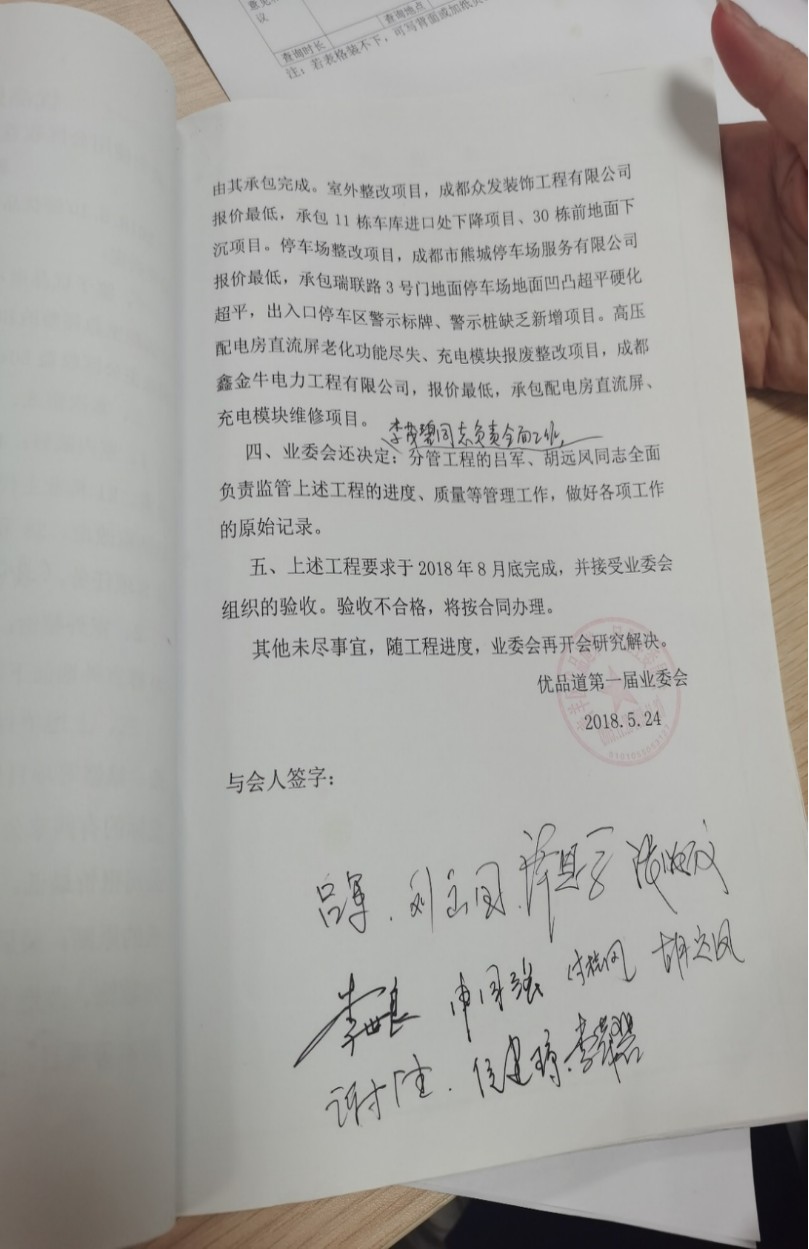 议
查询地点
查询时长
注：若表格装不下，可写背面或加纸
由其承包完成。室外整改项目，成都众发装饰工程有限公司
报价最低，承包 11 栋车库进口处下降项目、30 栋前地面下
沉项目。停车场整改项目，成都市熊城停车场服务有限公司
报价最低，承包瑞联路 3 号门地面停车场地面凹凸超平硬化
超平，出入口停车区警示标牌、警示桩缺乏新增项目。高压
配电房直流屏老化功能尽失、充电模块报废整改项目，成都
鑫金牛电力工程有限公司，报价最低，承包配电房直流屏、
充电模块维修项目。
李茂碧同志负责全面工作，
四、业委会还决定：分管工程的吕军、胡远风同志全面
负责监管上述工程的进度、质量等管理工作，做好各项工作
的原始记录。
五、上述工程要求于 2018 年 8 月底完成，并接受业委会
组织的验收。验收不合格，将按合同办理。
其他未尽事宜，随工程进度，业委会再开会研究解决。
优品道第一届业委会
2018.5.24
与会人签字：
吕军
李世良 申国强 胡远风
侯建琼 李茂碧